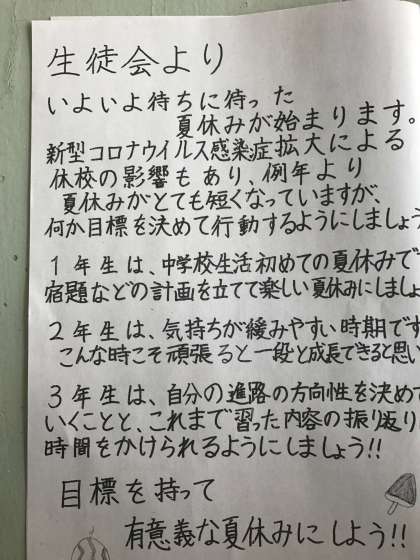 生徒会より
いよいよ待ちに待った
夏休みが始まります。
新型コロナウイルス感染症拡大による
休校の影響もあり、例年より
夏休みがとても短くなっていますが、
何か目標を決めて行動するようにしましょう
1年生は、中学校生活初めての夏休みで
宿題などの計画を立てて楽しい夏休みにしましょ
2年生は、気持ちが緩みやすい時期です
こんな時こそ頑張ると一段と成長できると思い
3年生は、自分の進路の方向性を決めて
いくことと、これまで習った内容の振り返りに
時間をかけられるようにしましょう!!
目標を持って
有意義な夏休みにしよう!!